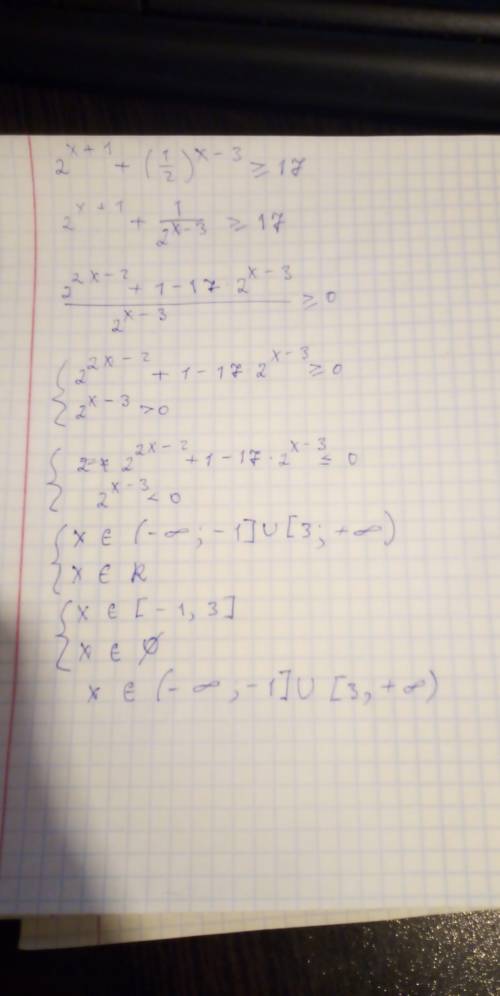 2^{x+1} + (1/2)^{x-3} ≥ 17
2^{x+1} + 1/2^{x-3} ≥ 17
(2^{2x-2} + 1 - 17 · 2^{x-3})/2^{x-3} ≥ 0
{ 2^{2x-2} + 1 - 17 · 2^{x-3} ≥ 0
2^{x-3} > 0
{ 2^{2x-2} + 1 - 17 · 2^{x-3} ≤ 0
2^{x-3} < 0
{ x ∈ (-∞; -1] ∪ [3; +∞)
x ∈ R
{ x ∈ [-1, 3]
x ∈ ∅
x ∈ (-∞, -1] ∪ [3, +∞)